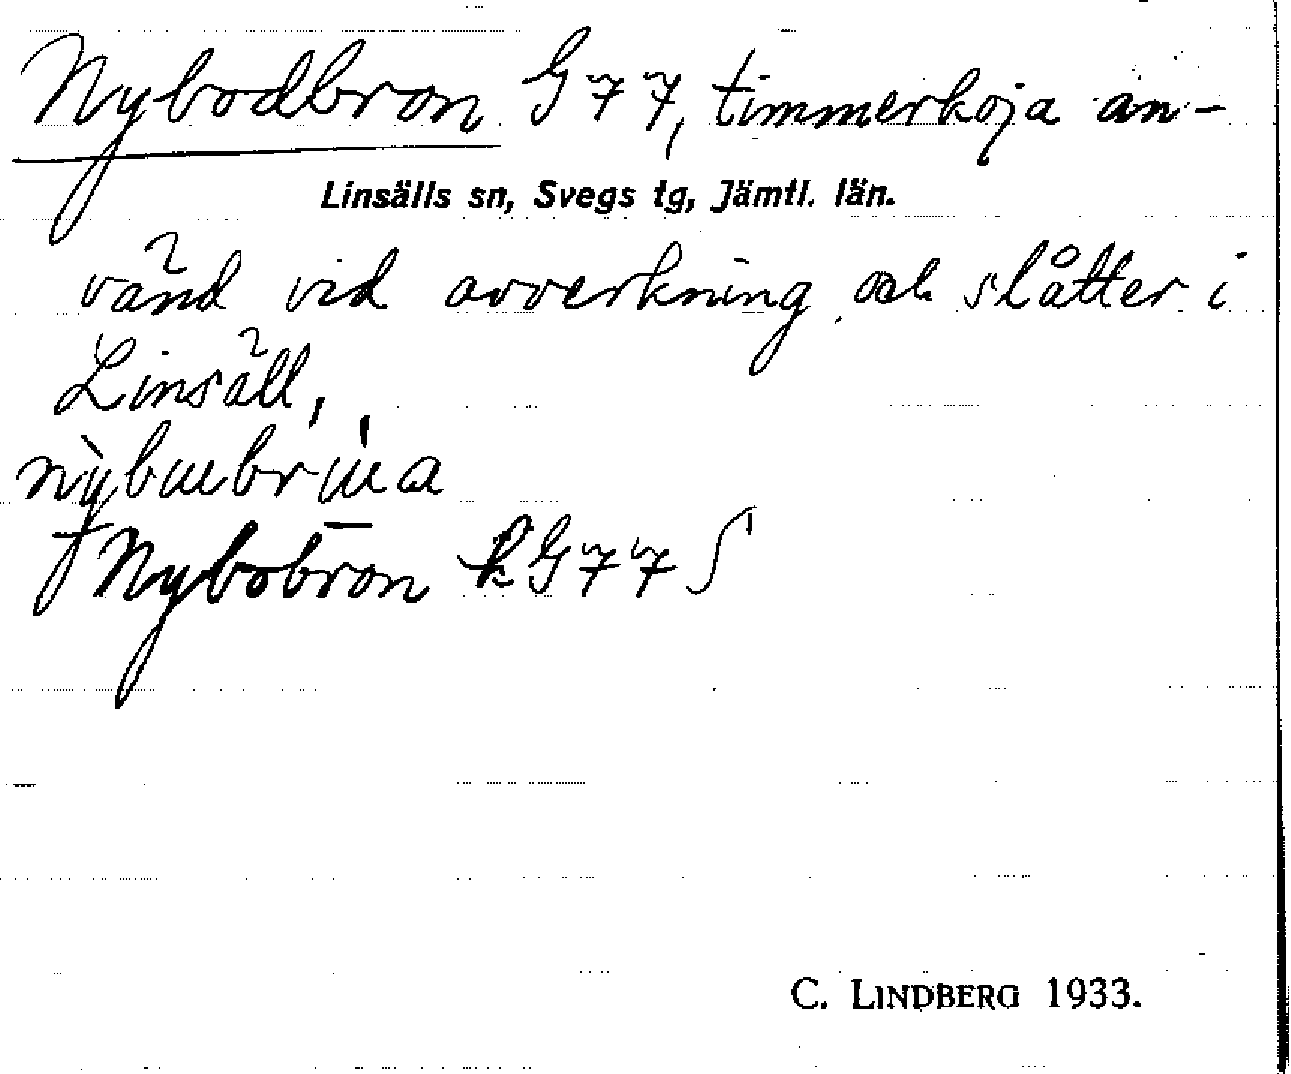 Nybodbron G77, timmerkoja an-
Linsälls sn, Svegs tg, Jämtl. län.
vänd vid avverkning och slåtter i
Linsäll,
Nybobron k G77 S
C. LINDBERG 1933.